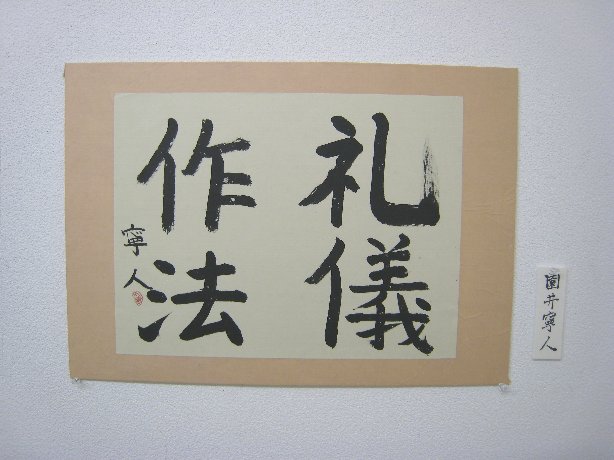 礼儀
作法
寧人
園井寧人